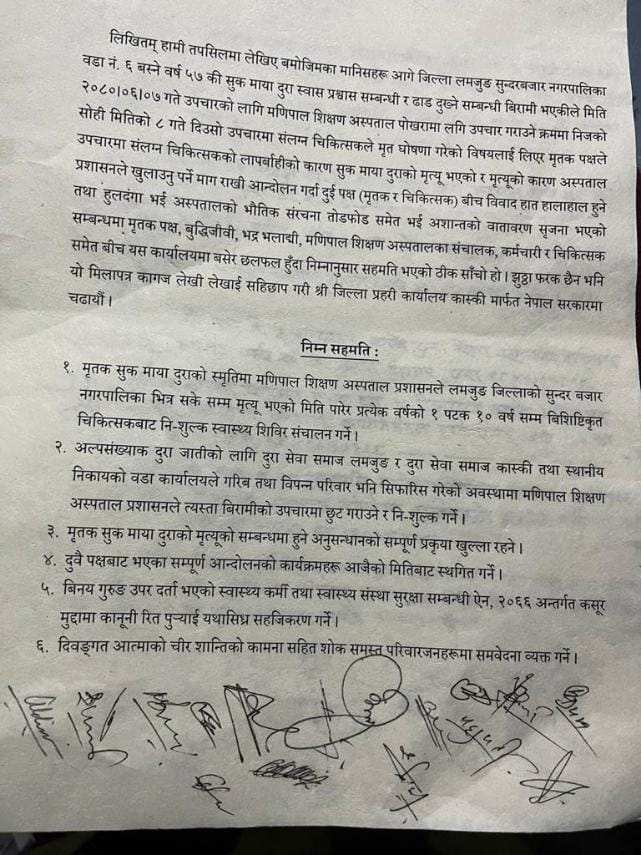 लिखितम् हामी तपसिलमा लेखिए बमोजिमका मानिसहरू आगे जिल्ला लमजुङ सुन्दरबजार नगरपालिका
वडा नं. ६ बस्ने वर्ष ५७ की सुक माया दुरा स्वास प्रश्वास सम्बन्धी र ढाड दुख्ने सम्बन्धी बिरामी भएकीले मिति
२०८०।०६।०७ गते उपचारको लागि मणिपाल शिक्षण अस्पताल पोखरामा लगि उपचार गराउने क्रममा निजको
सोही मितिको ८ गते दिउसो उपचारमा संलग्न चिकित्सकले मृत घोषणा गरेको विषयलाई लिएर मृतक पक्षले
उपचारमा संलग्न चिकित्सकको लापर्बाहीको कारण सुक माया दुराको मृत्यू भएको र मृत्यूको कारण अस्पताल
प्रशासनले खुलाउनु पर्ने माग राखी आन्दोलन गर्दा दुई पक्ष (मृतक र चिकित्सक) बीच विवाद हात हालाहाल हुने
तथा हुलदंगा भई अस्पतालको भौतिक संरचना तोडफोड समेत भई अशान्तको वातावरण सृजना भएको
सम्बन्धमा मृतक पक्ष, बुद्धिजीवी, भद्र भलाद्मी, मणिपाल शिक्षण अस्पतालका संचालक, कर्मचारी र चिकित्सक
समेत बीच यस कार्यालयमा बसेर छलफल हुँदा निम्नानुसार सहमति भएको ठीक साँचो हो। झुठ्ठा फरक छैन भनि
यो मिलापत्र कागज लेखी लेखाई सहिछाप गरी श्री जिल्ला प्रहरी कार्यालय कास्की मार्फत नेपाल सरकारमा
चढायौं।
निम्न सहमति :
१. मृतक सुक माया दुराको स्मृतिमा मणिपाल शिक्षण अस्पताल प्रशासनले लमजुङ जिल्लाको सुन्दर बजार
नगरपालिका भित्र सके सम्म मृत्यू भएको मिति पारेर प्रत्येक वर्षको १ पटक १० वर्ष सम्म बिशिष्टिकृत
चिकित्सकबाट नि-शुल्क स्वास्थ्य शिविर संचालन गर्ने।
२. अल्पसंख्याक दुरा जातीको लागि दुरा सेवा समाज लमजुङ र दुरा सेवा समाज कास्की तथा स्थानीय
निकायको वडा कार्यालयले गरिब तथा विपन्न परिवार भनि सिफारिस गरेको अवस्थामा मणिपाल शिक्षण
अस्पताल प्रशासनले त्यस्ता बिरामीको उपचारमा छुट गराउने र नि-शुल्क गर्ने।
३. मृतक सुक माया दुराको मृत्यूको सम्बन्धमा हुने अनुसन्धानको सम्पूर्ण प्रकृया खुल्ला रहने।
४. दुवै पक्षबाट भएका सम्पूर्ण आन्दोलनको कार्यक्रमहरू आजैको मितिबाट स्थगित गर्ने।
५. बिनय गुरुङ उपर दर्ता भएको स्वास्थ्य कर्मी तथा स्वास्थ्य संस्था सुरक्षा सम्बन्धी ऐन, २०६६ अन्तर्गत कसूर
मुद्दामा कानूनी रित पुऱ्याई यथासिघ्र सहजिकरण गर्ने।
६. दिवङ्गत आत्माको चीर शान्तिको कामना सहित शोक समस्त परिवारजनहरूमा समवेदना व्यक्त गर्ने।